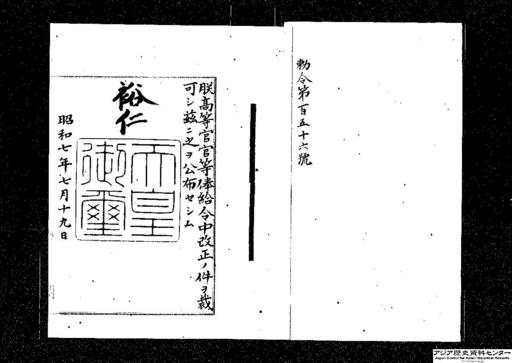 勅令第百五十六號
朕高等官官等俸給令中改正ノ件ヲ裁
可シ茲ニ之ヲ公布セシム
裕仁
天皇
御璽
昭和七年七月十九日
アジア歴史資料センター
Japan Center for Asian Historical Records